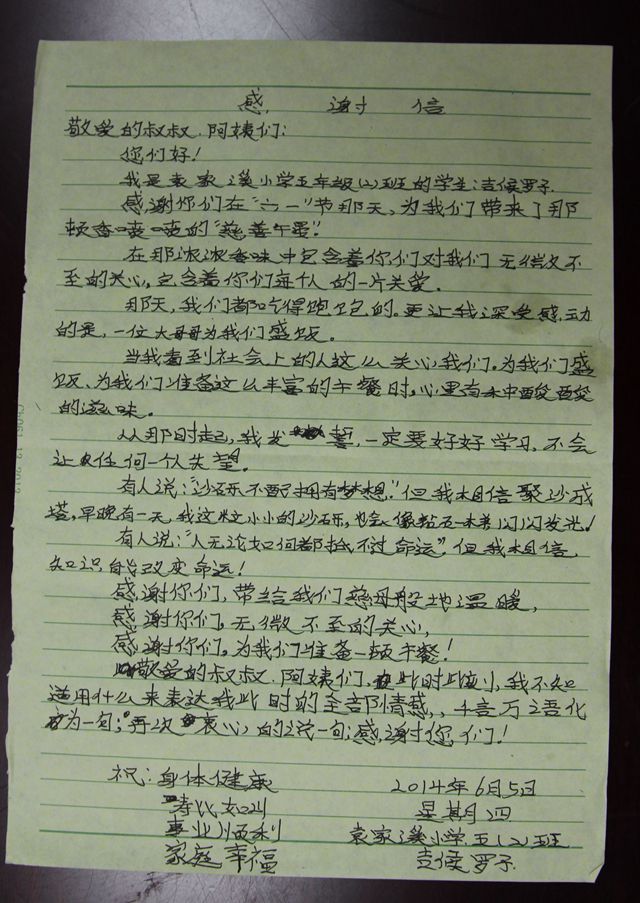 感 谢 信
敬爱的叔叔.阿姨们:
您们好!
我是袁家溪小学五年级(2)班的学生:吉候罗子.
感谢你们在"六一"节那天,为我们带来了那
顿香喷喷的"慈善午餐"!
在那浓浓香味中包含着你们对我们无微不
至的关心,包含着你们每个人的一片关爱.
那天,我们都吃得饱饱的.更让我深受感动
的是,一位大哥哥为我们盛饭.
当我看到社会上的人这么关心我们,为我们盛
饭、为我们准备这么丰富的午餐时,心里有种酸酸
的滋味.
从那时起,我发誓,一定要好好学习,不会
让任何一个人失望.
有人说:"沙砾不配拥有梦想."但我相信聚沙成
塔,早晚有一天,我这粒小小的沙砾,也会像钻石一样闪闪发光!
有人说:"人无论如何都抵不过命运",但我相信,
知识能改变命运!
感谢你们,带给我们慈母般地温暖,
感谢你们,无微不至的关心,
感谢你们,为我们准备一顿午餐!
敬爱的叔叔.阿姨们,此时此刻,我不知
道用什么来表达我此时的全部情感,,千言万语化
为一句:"再次衷心的说一句:感谢您们!
祝:身体健康 2014年6月5日
寿比如山 星期四
事业顺利 袁家溪小学五(2)班
家庭幸福 吉候罗子.